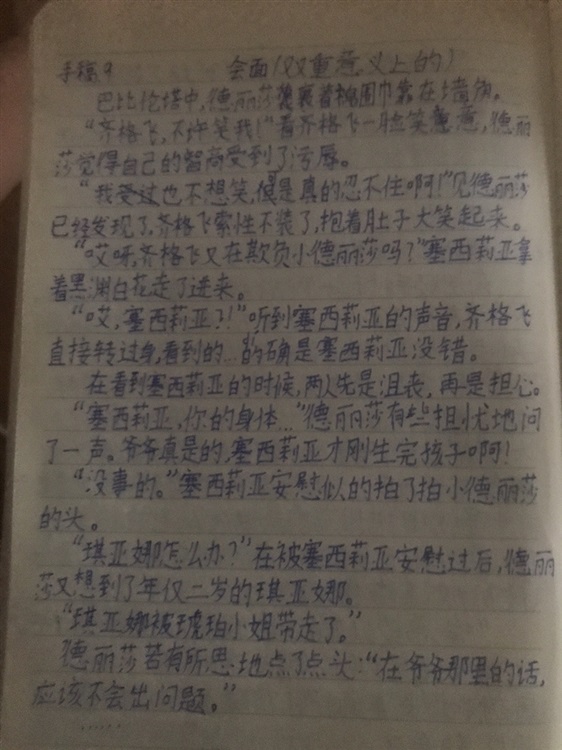 手稿9 会面(双重意义上的)
巴比伦塔中,德丽莎裹着棉围巾靠在墙角。
“齐格飞,不许笑我!”看齐格飞一脸笑意,德丽
莎觉得自己的智商受到了污辱。
“我受过也不想笑,但是真的忍不住啊!”见德丽莎
已经发现了,齐格飞索性不装了,抱着肚子大笑起来。
“哎呀,齐格飞又在欺负小德丽莎吗?”塞西莉亚拿
着黑渊白花走了进来。
“哎,塞西莉亚?!”听到塞西莉亚的声音,齐格飞
直接转过身,看到的…的确是塞西莉亚没错。
在看到塞西莉亚的时候,两人先是沮丧,再是担心。
“塞西莉亚,你的身体…”德丽莎有些担忧地问
了一声。爷爷真是的,塞西莉亚才刚生完孩子啊!
“没事的。”塞西莉亚安慰似的拍了拍小德丽莎
的头。
“琪亚娜怎么办?”在被塞西莉亚安慰过后,德丽
莎又想到了年仅二岁的琪亚娜。
“琪亚娜被琥珀小姐带走了。”
德丽莎若有所思地点了点头:“在爷爷那里的话,
应该不会出问题。”
……